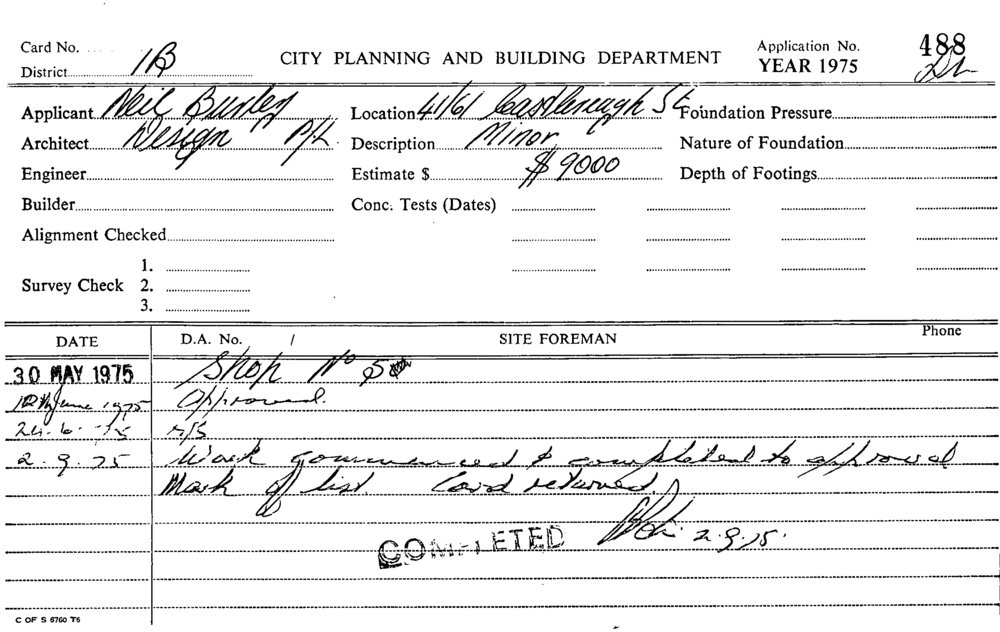 Card No.
District 1B
CITY PLANNING AND BUILDING DEPARTMENT
Application No. 488
YEAR 1975
Applicant Neil Burley Location 41/61 Castlereagh St Foundation Pressure
Architect Design P/L. Description Minor Nature of Foundation
Engineer Estimate $ $ 9000 Depth of Footings
Builder Conc. Tests (Dates)
Alignment Checked
1.
Survey Check 2.
3.
DATE D.A. No. / SITE FOREMAN Phone
30 MAY 1975 Shop No 5
12th June 1975 Approved.
24.6.75 N/S
2.9.75 Work commenced & completed to approval
Mark off list. Card returned.
2.9.75.
COMPLETED
C OF S 6760 T6